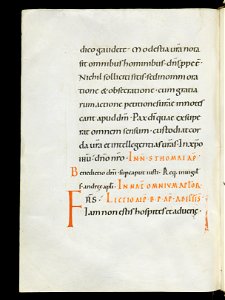 dico gaudete. Modestia ura nota
sit omnibus hominibus. dns ppe est.
Nichil solliciti sitis. sed in omni ora
tione & obsecratione. cum gratia
rum actione petitiones urae innotes
cant apud dm. Pax di quae exsupe
rat omnem sensum. custodiat cor
da ura et intellegentias uras. In xpo
ihu dno nro. IN N. S. THOMAE AP.
Benedictio dni sup caput iusti. Req.
f. andreę apli. IN NAT. OMNIUM APLOR.
FRS. LECTIO AEP. B. P. AP. AD
Iam non estis hospites et aduenę.